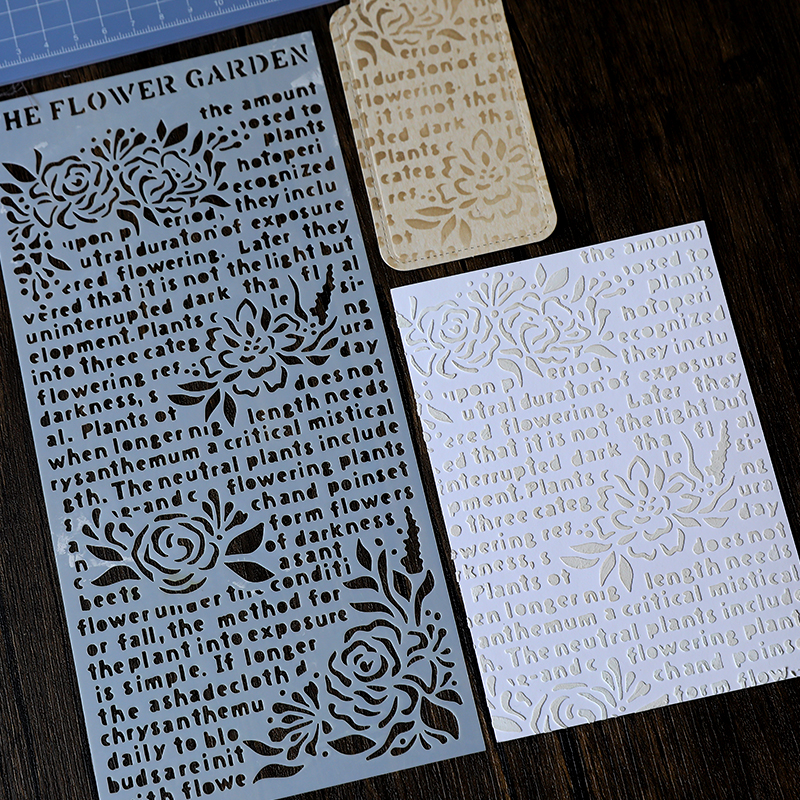 HE FLOWER GARDEN
the amount
osed to
plants
hotoperi
ecognized
they inclu
upon p eriod, of exposure
utral duraton of exposure
ered flowering. Later they
vered that it is not the light but
uninterrupted dark tha fl al
elopment. Plants le si-
into three categ ura
flowering res ng
darkness, s day
al. Plants ot does not
when longer nig length needs
rysanthemum a critical mistical
gth. The neutral plants include
s 've-and c flowering plants
n chand poinset
c form flowers
beets of darkness
asant
flower under the conditi
or fall, the method for
the plant into exposure
is simple. If longer
the ashadecloth d
chrysanthemu
daily to blo
buds are init
with flowe
eco
eriod, the
l duraton of ex
flowering. Late
t it is not the l
pted dark tha
Plants le
categ
res
ot
the amount
osed to
plants
hotoperi
ecognized
they inclu
upon p eriod, of exposure
utral duraton of exposure
ered flowering. Later they
red that it is not the light but
nterrupted dark tha fl al
pment. Plants le si-
o three categ ura
owering res ng
kness, s day
Plants ot does not
en longer nig length needs
anthemum a critical mistical
h. The neutral plants include
've-and c flowering plant
chand poinse
form flow